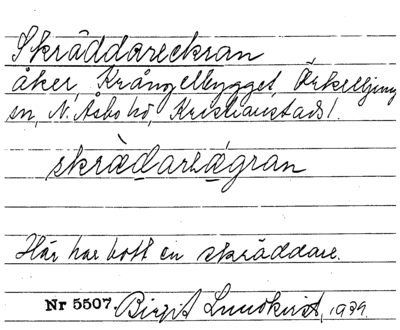 Skräddareekran
åker, Krångelbygget, Örkelljung
sn, N. Åsbo hd, Kristianstads l.
skræ̀darᴇá̀gran
Här har bott en skräddare.
Nr 5507. Birgit Lundkvist, 1929.